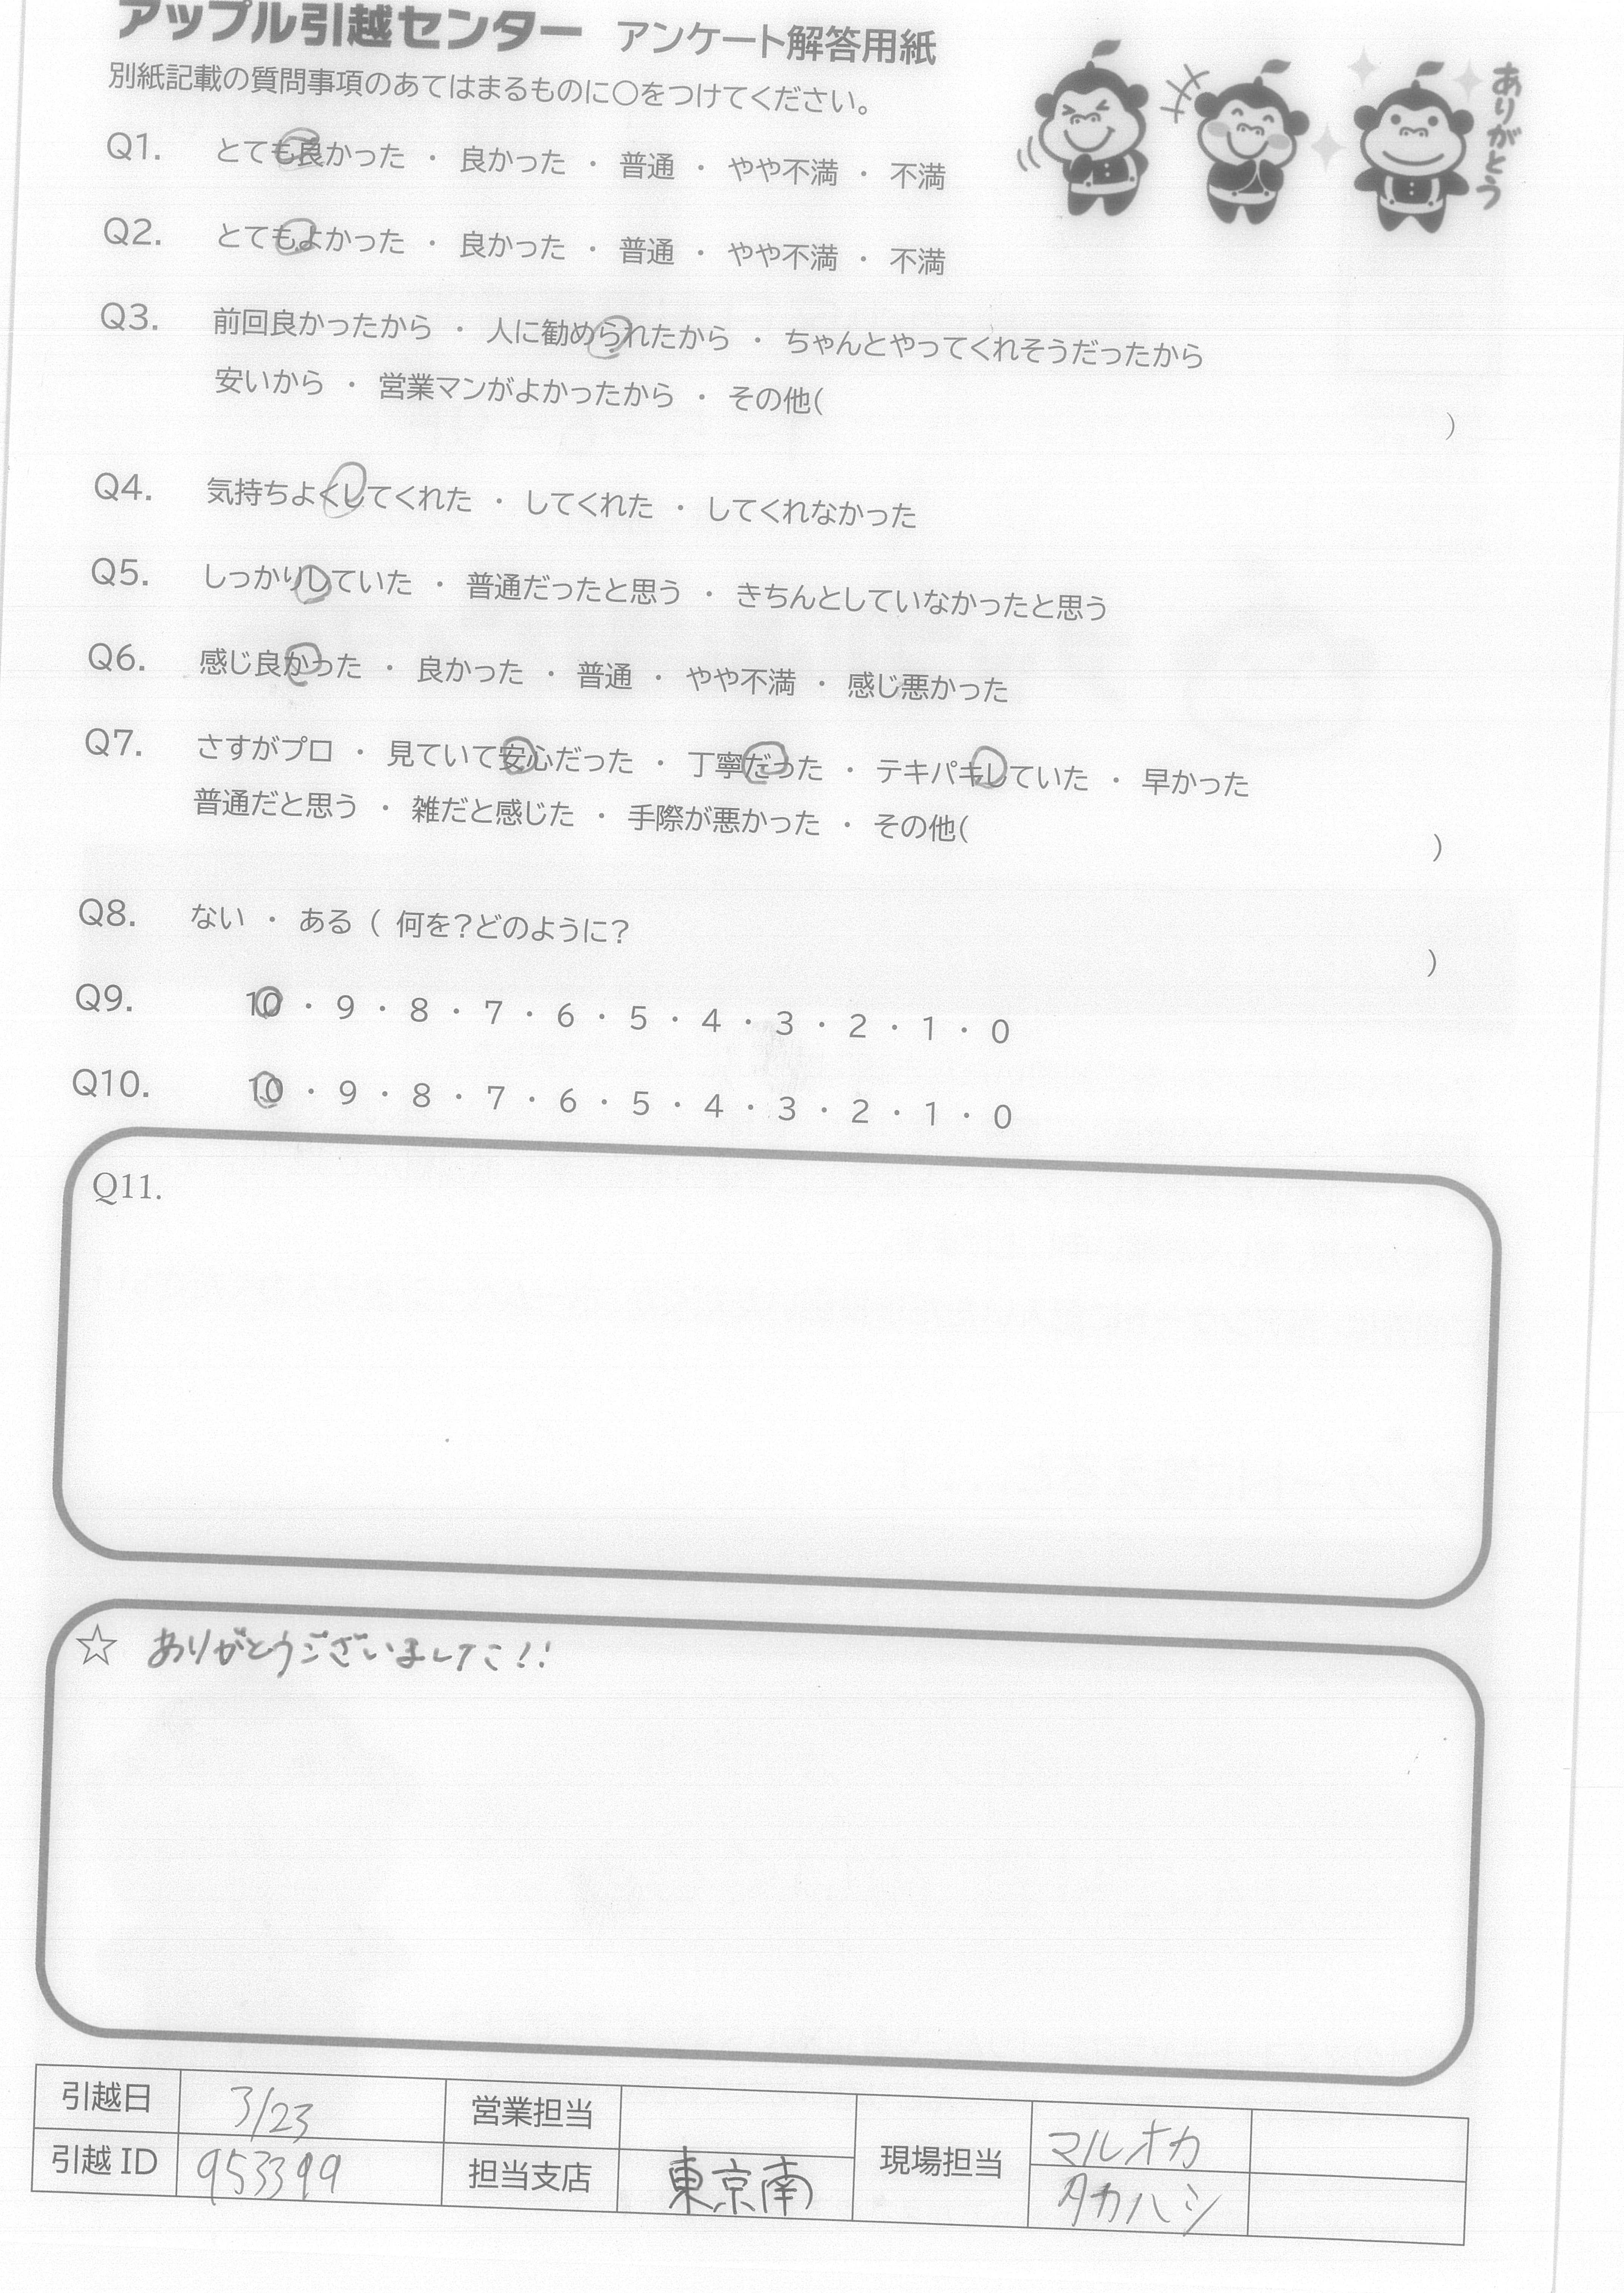 アップル引越センター アンケート解答用紙
別紙記載の質問事項のあてはまるものに○をつけてください。
ありがとう
Q1. とても良かった ・ 良かった ・ 普通 ・ やや不満 ・ 不満
Q2. とてもよかった ・ 良かった ・ 普通 ・ やや不満 ・ 不満
Q3. 前回良かったから ・ 人に勧められたから ・ ちゃんとやってくれそうだったから
安いから ・ 営業マンがよかったから ・ その他( )
Q4. 気持ちよくしてくれた ・ してくれた ・ してくれなかった
Q5. しっかりしていた ・ 普通だったと思う ・ きちんとしていなかったと思う
Q6. 感じ良かった ・ 良かった ・ 普通 ・ やや不満 ・ 感じ悪かった
Q7. さすがプロ ・ 見ていて安心だった ・ 丁寧だった ・ テキパキしていた ・ 早かった
普通だと思う ・ 雑だと感じた ・ 手際が悪かった ・ その他( )
Q8. ない ・ ある ( 何を?どのように? )
Q9. 10 ・ 9 ・ 8 ・ 7 ・ 6 ・ 5 ・ 4 ・ 3 ・ 2 ・ 1 ・ 0
Q10. 10 ・ 9 ・ 8 ・ 7 ・ 6 ・ 5 ・ 4 ・ 3 ・ 2 ・ 1 ・ 0
Q11.
☆ ありがとうございました!!
引越日 3/23 営業担当 現場担当 マルオカ
引越 ID 953399 担当支店 東京南 タカハシ